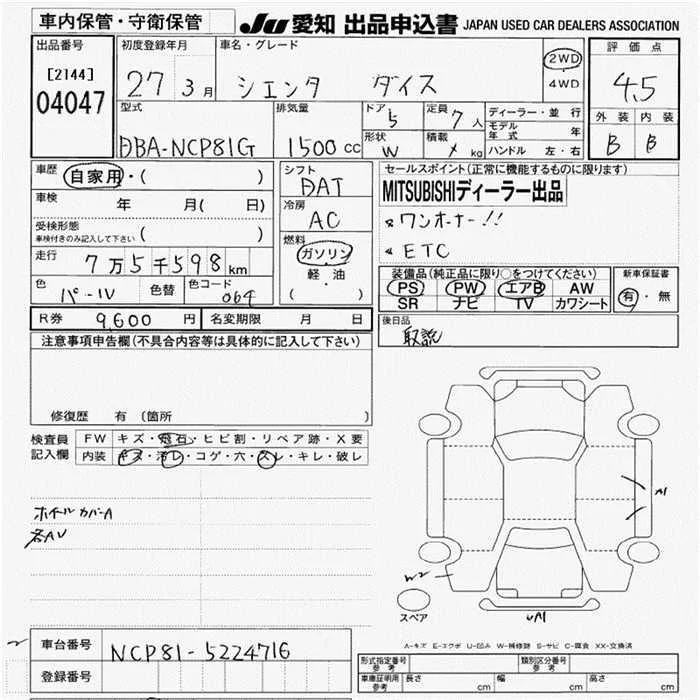 車内保管・守衛保管
JU 愛知 出品申込書 JAPAN USED CAR DEALERS ASSOCIATION
出品番号
[2144]
04047
初度登録年月
27 3月
車名・グレード
シエンタ ダイス
2WD
4WD
評価点
4.5
外装 内装
B B
型式
DBA-NCP81G
排気量
1500cc
ドア
5
定員
7人
形状
W
積載
kg
ディーラー・並行
モデル年式 年
ハンドル 左・右
車歴
自家用・( )
車検
年 月( 日)
受検形態
車検付きのみ記入して下さい ( )
走行
7万5千598km
色
パール
色替
色コード
064
シフト
DAT
冷房
AC
燃料
ガソリン
軽油
( )
セールスポイント(正常に機能するものに限ります)
MITSUBISHIディーラー出品
ワンオーナー!!
ETC
装備品(純正品に限り○をつけてください)
PS PW エアB AW
SR ナビ TV カワシート
新車保証書
有・無
後日品
取説
R券 9,600円
名変期限 月 日
注意事項申告欄(不具合内容等は具体的に記入して下さい)
修復歴 有(箇所 )
検査員記入欄
FW キズ・飛石・ヒビ割・リペア跡・X要
内装 キズ・汚レ・コゲ・穴・スレ・キレ・破レ
ホイールカバーA
各AU
A1
W2
UA1
スペア
A-キズ E-エクボ U-凹み W-補修跡 S-サビ C-腐食 XX-交換済
車台番号
NCP81-5224716
登録番号
型式指定番号 参考
類別区分番号 参考
車庫証明用 参考
長さ cm
幅 cm
高さ cm